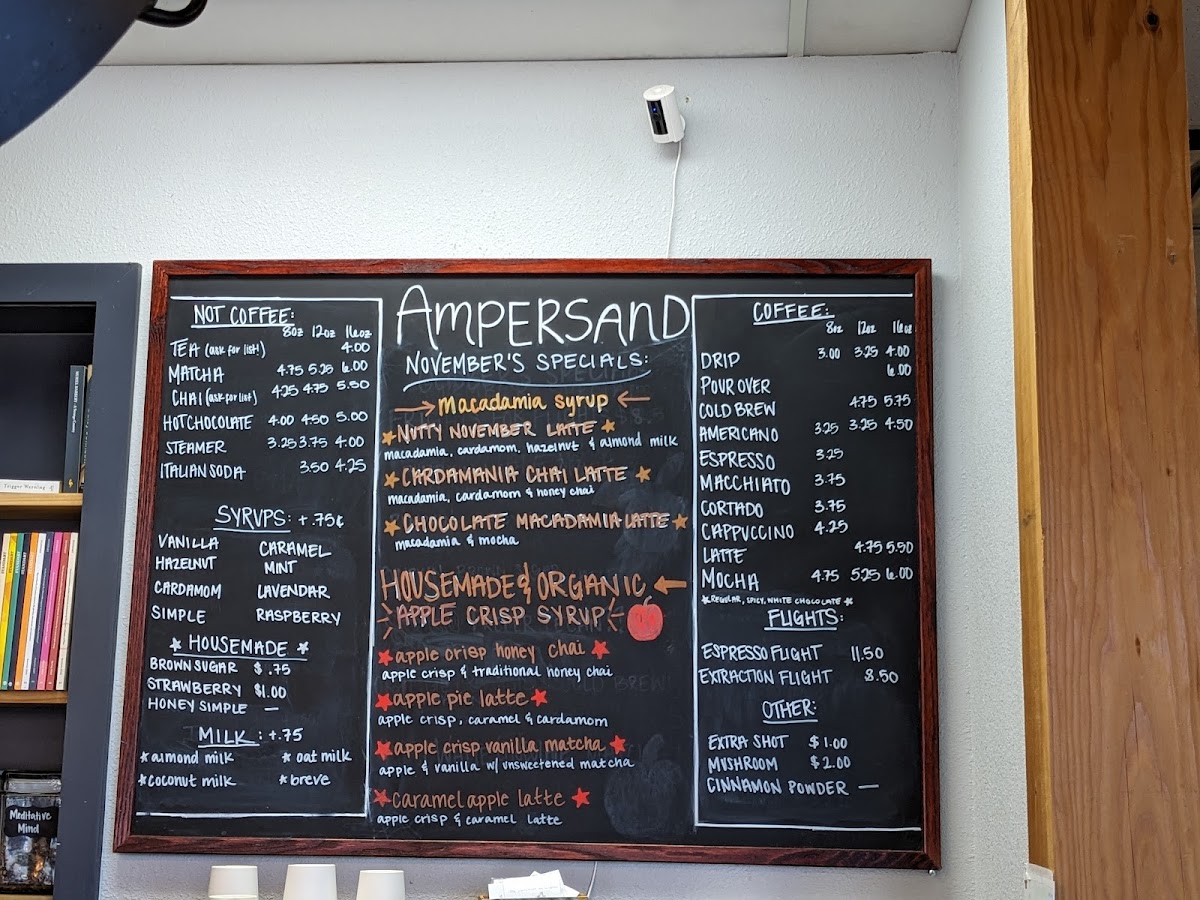 AMPERSAND
NOT COFFEE:
8oz 12oz 16oz
TEA (ask for list!) 4.00
MATCHA 4.75 5.25 6.00
CHAI (ask for list) 4.25 4.75 5.50
HOT CHOCOLATE 4.00 4.50 5.00
STEAMER 3.25 3.75 4.00
ITALIAN SODA 3.50 4.25
SYRUPS: +.75¢
VANILLA CARAMEL
HAZELNUT MINT
CARDAMOM LAVENDAR
SIMPLE RASPBERRY
★ HOUSEMADE ★
BROWN SUGAR $ .75
STRAWBERRY $1.00
HONEY SIMPLE —
MILK: +.75
*almond milk * oat milk
*coconut milk *breve
NOVEMBER'S SPECIALS:
→ macadamia syrup ←
★ NUTTY NOVEMBER LATTE ★
macadamia, cardamom, hazelnut & almond milk
★ CARDAMANIA CHAI LATTE ★
macadamia, cardamom & honey chai
★ CHOCOLATE MACADAMIA LATTE ★
macadamia & mocha
HOUSEMADE & ORGANIC ←
APPLE CRISP SYRUP
★ apple crisp honey chai ★
apple crisp & traditional honey chai
★ apple pie latte ★
apple crisp, caramel & cardamom
★ apple crisp vanilla matcha ★
apple & vanilla w/ unsweetened matcha
★ caramel apple latte ★
apple crisp & caramel latte
COFFEE:
8oz 12oz 16oz
DRIP 3.00 3.25 4.00
POUR OVER 6.00
COLD BREW 4.75 5.75
AMERICANO 3.25 3.25 4.50
ESPRESSO 3.25
MACCHIATO 3.75
CORTADO 3.75
CAPPUCCINO 4.25
LATTE 4.75 5.50
MOCHA 4.75 5.25 6.00
*REGULAR, SPICY, WHITE CHOCOLATE *
FLIGHTS:
ESPRESSO FLIGHT 11.50
EXTRACTION FLIGHT 8.50
OTHER:
EXTRA SHOT $1.00
MUSHROOM $2.00
CINNAMON POWDER —
Trigger Warning
Meditative
Mind